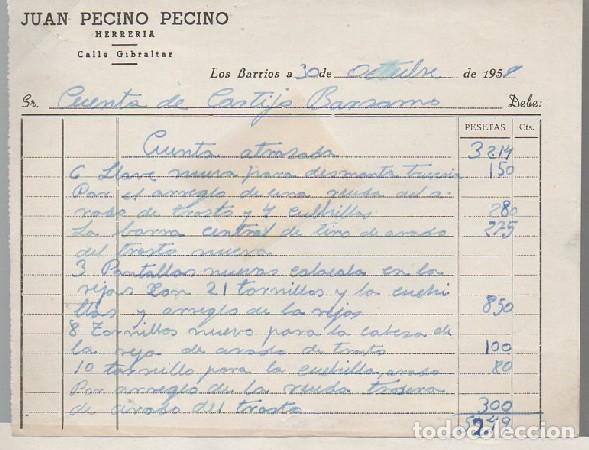 JUAN PECINO PECINO
HERRERIA
Calle Gibraltar
Los Barrios a 30 de Octubre de 195
Sr. Cuenta de Castijo Barsamo Debe:
PESETAS Cts.
Cuenta atrasada 3219
6 Llave nueva para desmonta tuercia 150
Por el arreglo de una rueda del a-
rado de trasto y 4 cuchillas 280
La barra central de tiro de arado 275
del trasto nueva
3 Pantallas nuevas colocala en la
rejas con 21 tornillos y la cuchi-
llas y arreglo de la rejos 850
8 Tornillos nuevo para la cabeza de
la reja de arado de trasto 100
10 tornillo para la cuchilla arado 80
Por arreglo de la rueda trasera
de arado del trasto 300
5279
todocoleccion